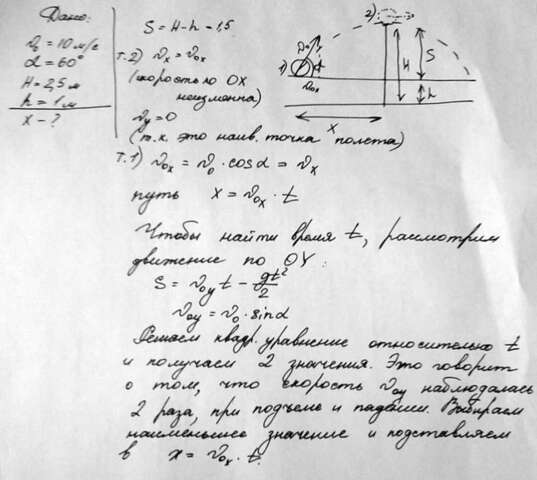 Дано:
v₀ = 10 м/с
α = 60°
H = 2,5 м
h = 1 м
x - ?
S = H - h = 1,5
т.2) vx = v₀x
(скорость по OX
неизменна)
vy = 0
(т.к. это наив. точка полета)
т.1) v₀x = v₀ · cosα = vx
путь x = v₀x · t
Чтобы найти время t, рассмотрим
движение по OY:
S = v₀y t - gt²/2
v₀y = v₀ · sinα
Решаем квадр. уравнение относительно t
и получаем 2 значения. Это говорит
о том, что скорость v₀y наблюдалась
2 раза, при подъеме и падении. Выбираем
наименьшее значение и подставляем
в x = v₀x · t.
1)
2)
v₀
v₀x
H
S
h
x